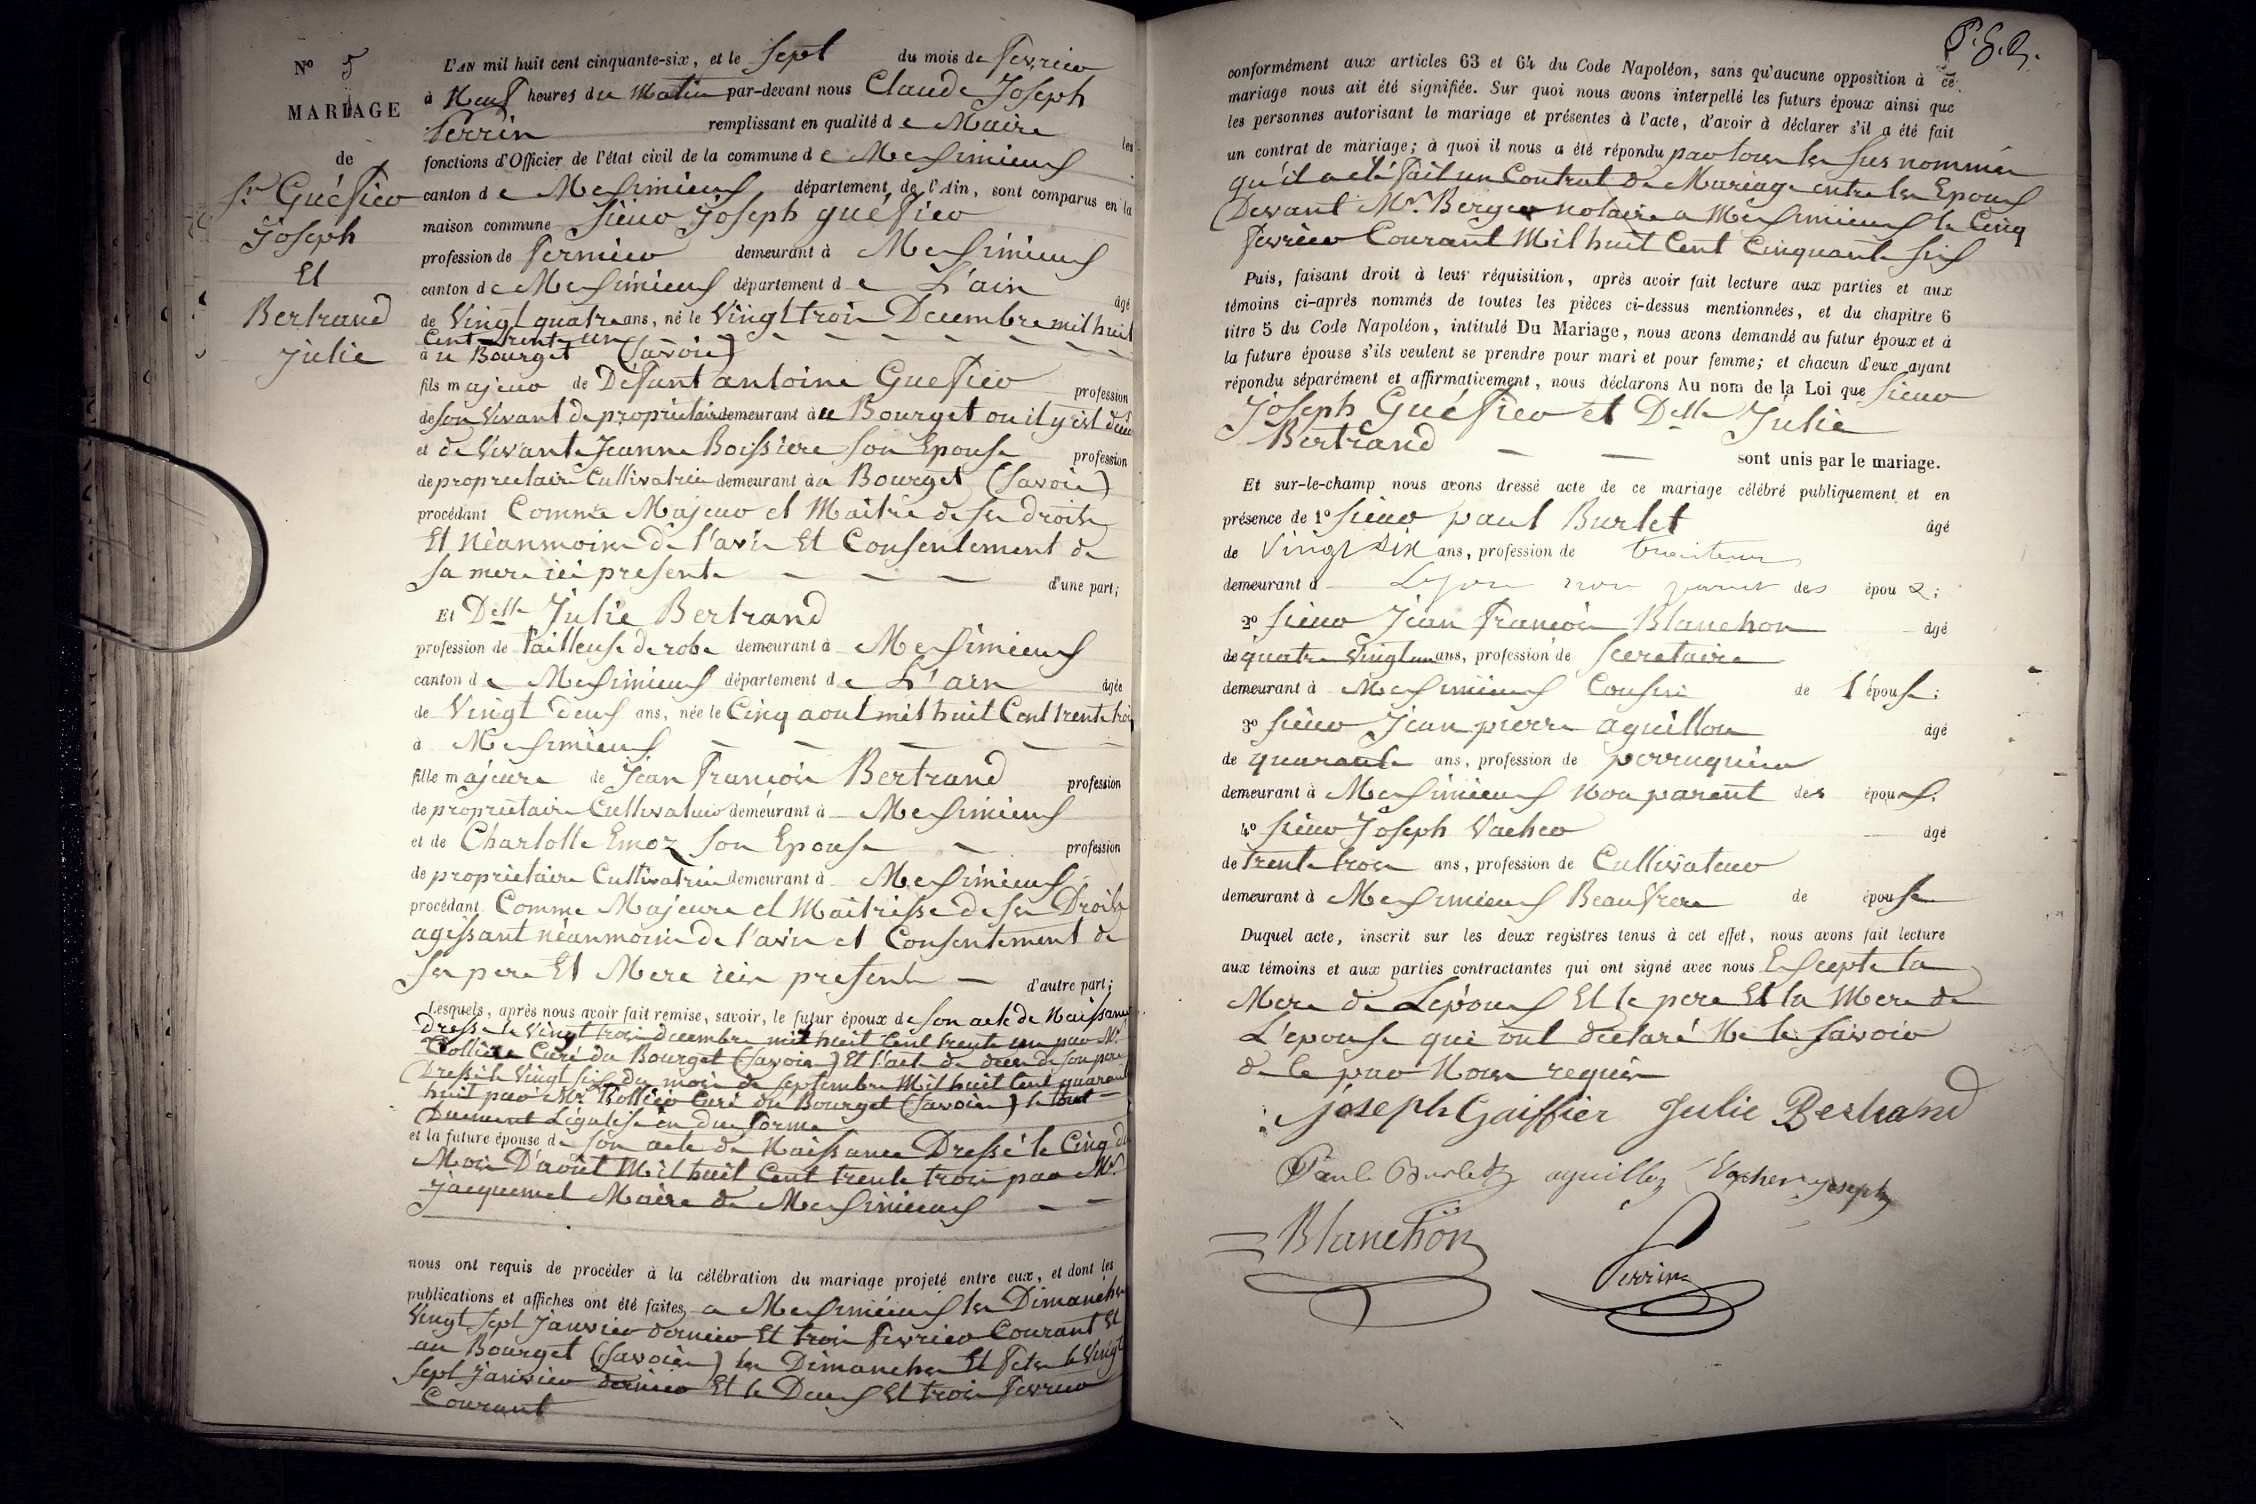 Nº 5
MARIAGE
de
Sr Guéfier
Joseph
Et
Bertrand
Julie
L'AN mil huit cent cinquante-six, et le Sept du mois de fevrier
à Neuf heures du Matin par-devant nous Claude Joseph
Perrin remplissant en qualité de Maire les
fonctions d'Officier de l'état civil de la commune de Meximieux
canton de Meximieux, département de l'Ain, sont comparus en la
maison commune Sieur Joseph guéfier
profession de fermier demeurant à Meximieux
canton de Meximieux département de L'ain âgé
de Vingt quatre ans, né le Vingt trois Decembre mil huit
Cent trente un
au Bourget (Savoie)
fils majeur de Défunt antoine Guefier profession
de son Vivant de propriétaire demeurant au Bourget ou il y est décédé
et de Vivante Jeanne Boissiere son Epouse profession
de proprietaire Cultivatrice demeurant au Bourget (Savoie)
procédant Comme Majeur et Maitre de ses droits
Et Néanmoins de l'avis Et Consentement de
sa mere ici presente d'une part;
Et Delle Julie Bertrand
profession de Tailleuse de robe demeurant à Meximieux
canton de Meximieux département de L'ain âgée
de Vingt deux ans, née le Cinq aout mil huit Cent trente trois
à Meximieux
fille majeure de Jean françois Bertrand profession
de propriétaire Cultivateur demeurant à Meximieux
et de Charlotte Emoz son Epouse profession
de propriétaire Cultivatrice demeurant à Meximieux
procédant Comme Majeure et Maitrisse de ses Droits
agissant néanmoins de l'avis et Consentement de
ses pere Et Mere ici presents d'autre part;
Lesquels, après nous avoir fait remise, savoir, le futur époux de son acte de Naissance
Dressé le Vingt trois decembre mil huit Cent trente un par Mr
Curé du Bourget (Savoie) Et l'acte de deces de son pere
Dressé le Vingt six du mois de septembre Mil huit Cent quarante
huit par Mr Curé du Bourget (Savoie) le tout
Duement Légalisé en due forme
et la future épouse de son acte de Naissance Dressé le Cinq du
Mois D'aout Mil huit Cent trente trois par Mr
Jacquemet Maire de Meximieux
nous ont requis de procéder à la célébration du mariage projeté entre eux, et dont les
publications et affiches ont été faites, a Meximieux les Dimanches
Vingt sept janvier dernier Et trois fevrier Courant Et
au Bourget (Savoie) les Dimanches Et fetes le Vingt
sept Janvier dernier Et le Deux Et trois fevrier
Courant
conformément aux articles 63 et 64 du Code Napoléon, sans qu'aucune opposition à ce
mariage nous ait été signifiée. Sur quoi nous avons interpellé les futurs époux ainsi que
les personnes autorisant le mariage et présentes à l'acte, d'avoir à déclarer s'il a été fait
un contrat de mariage; à quoi il nous a été répondu par tous les sus nommés
qu'il a été fait un Contrat de Mariage entre les Epoux
Devant Mr. Berger notaire a Meximieux le Cinq
fevrier Courant Mil huit Cent Cinquante six
Puis, faisant droit à leur réquisition, après avoir fait lecture aux parties et aux
témoins ci-après nommés de toutes les pièces ci-dessus mentionnées, et du chapitre 6
titre 5 du Code Napoléon, intitulé Du Mariage, nous avons demandé au futur époux et à
la future épouse s'ils veulent se prendre pour mari et pour femme; et chacun d'eux ayant
répondu séparément et affirmativement, nous déclarons Au nom de la Loi que Sieur
Joseph Guéfier et Delle Julie
Bertrand
sont unis par le mariage.
Et sur-le-champ nous avons dressé acte de ce mariage célébré publiquement et en
présence de 1º Sieur paul Burlet âgé
de Vingt six ans, profession de traiteur
demeurant à Lyon non parent des épou x;
2º Sieur Jean françois Blanchon âgé
de quatre Vingt un ans, profession de Secretaire
demeurant à Meximieux Cousin de l'épouse;
3º Sieur Jean pierre aguillon âgé
de quarante ans, profession de perruquier
demeurant à Meximieux Non parent des époux;
4º Sieur Joseph Vacher âgé
de trente trois ans, profession de Cultivateur
demeurant à Meximieux Beaufrere de épouse
Duquel acte, inscrit sur les deux registres tenus à cet effet, nous avons fait lecture
aux témoins et aux parties contractantes qui ont signé avec nous Excepté la
Mere de Lepoux Et le pere Et la Mere de
L'epouse qui ont declaré Ne le savoir
de ce par Nous requis
joseph Gaiffier Julie Bertrand
Paul Burlet aguillon Vacher joseph
Blanchon
Perrin